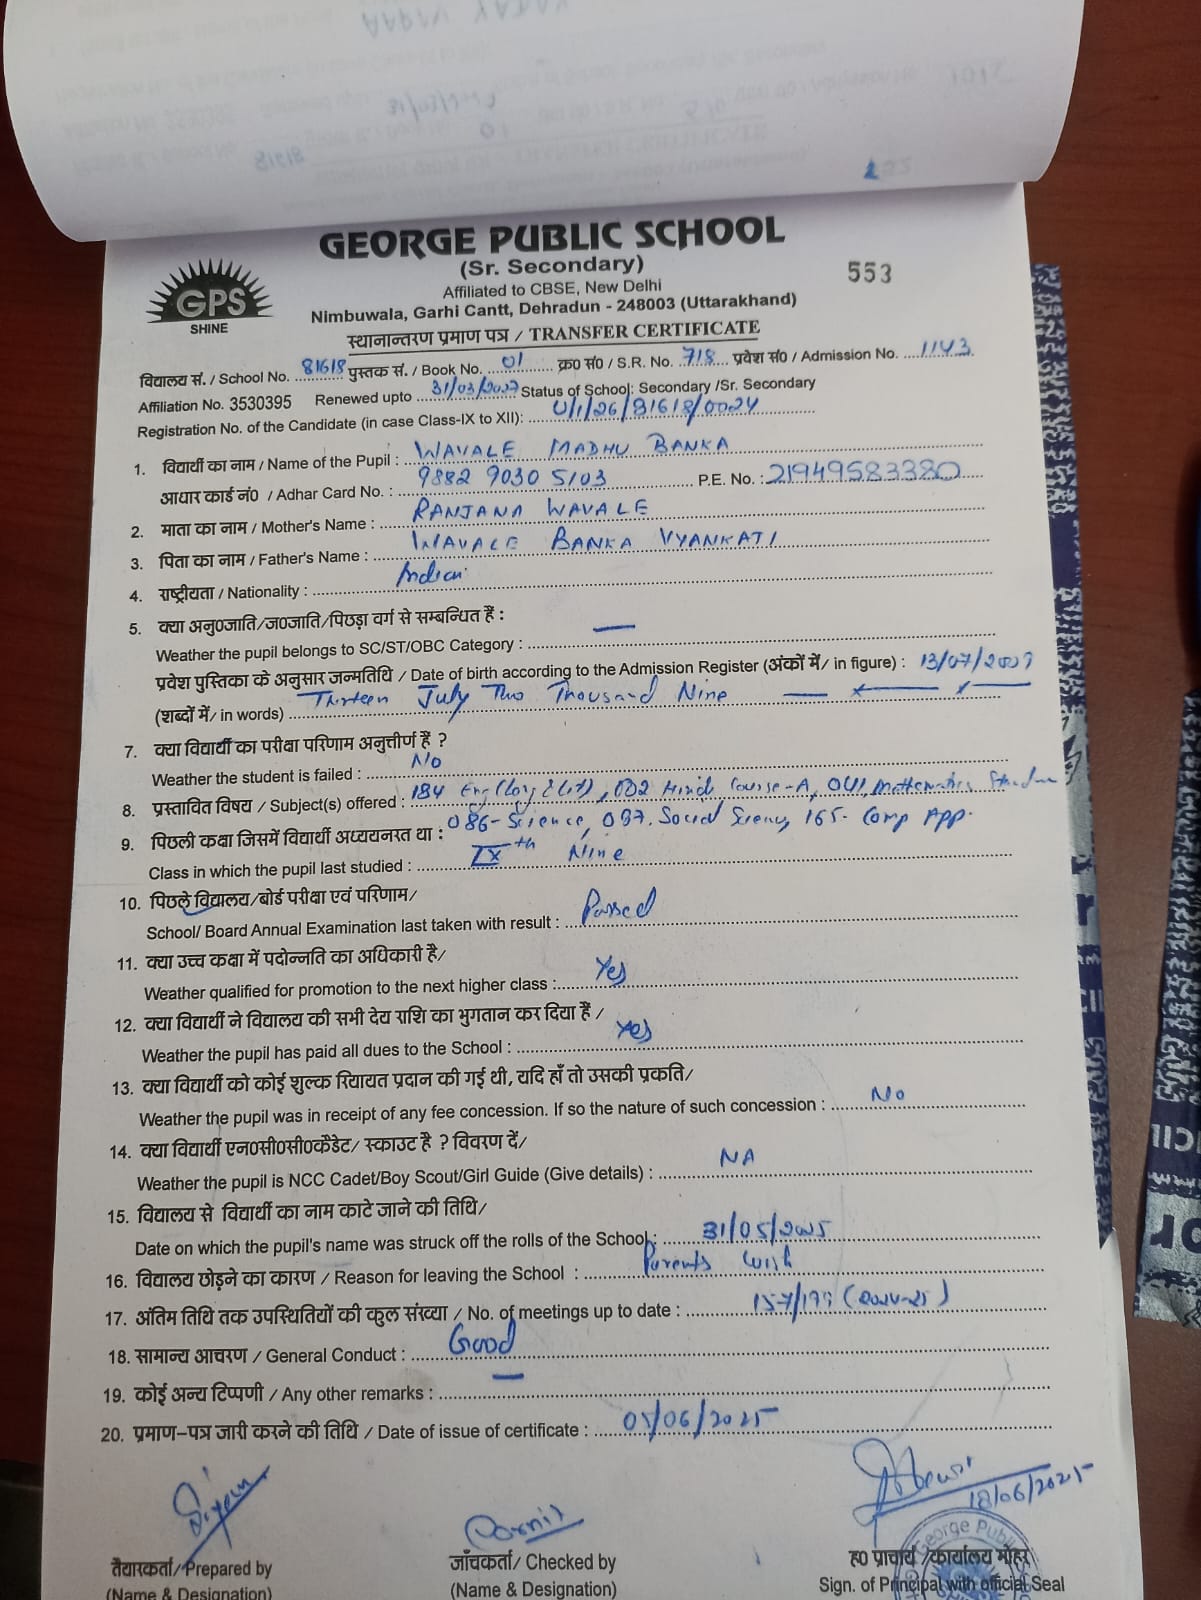 GEORGE PUBLIC SCHOOL
(Sr. Secondary)
553
Affiliated to CBSE, New Delhi
GPS
SHINE
Nimbuwala, Garhi Cantt, Dehradun - 248003 (Uttarakhand)
स्थानान्तरण प्रमाण पत्र / TRANSFER CERTIFICATE
विद्यालय सं. / School No. 81618 पुस्तक सं. / Book No. 01 क्र० सं० / S.R. No. 718 प्रवेश सं० / Admission No. 1143
Affiliation No. 3530395 Renewed upto 31/03/2027 Status of School: Secondary /Sr. Secondary
Registration No. of the Candidate (in case Class-IX to XII): U/1/26/81618/0024
1. विद्यार्थी का नाम / Name of the Pupil : WAVALE MADHU BANKA
आधार कार्ड नं० / Adhar Card No. : 9882 9030 5103 P.E. No. : 21949583380
2. माता का नाम / Mother's Name : RANJANA WAVALE
3. पिता का नाम / Father's Name : WAVALE BANKA VYANKATI
4. राष्ट्रीयता / Nationality : Indian
5. क्या अनु०जाति/ज०जाति/पिछड़ा वर्ग से सम्बन्धित हैं : —
Weather the pupil belongs to SC/ST/OBC Category :
प्रवेश पुस्तिका के अनुसार जन्मतिथि / Date of birth according to the Admission Register (अंकों में/ in figure) : 13/07/2009
(शब्दों में/ in words) Thirteen July Two Thousand Nine
7. क्या विद्यार्थी का परीक्षा परिणाम अनुत्तीर्ण हैं ?
Weather the student is failed : No
8. प्रस्तावित विषय / Subject(s) offered : 184 Eng (Lang & Lit), 002 Hindi Course-A, 041, Mathematics
086-Science, 087. Social Science, 165- Comp App.
9. पिछली कक्षा जिसमें विद्यार्थी अध्ययनरत था :
Class in which the pupil last studied : IXth Nine
10. पिछले विद्यालय/बोर्ड परीक्षा एवं परिणाम/
School/ Board Annual Examination last taken with result : Passed
11. क्या उच्च कक्षा में पदोन्नति का अधिकारी है/
Weather qualified for promotion to the next higher class : Yes
12. क्या विद्यार्थी ने विद्यालय की सभी देय राशि का भुगतान कर दिया हैं /
Weather the pupil has paid all dues to the School : Yes
13. क्या विद्यार्थी को कोई शुल्क रियायत प्रदान की गई थी, यदि हाँ तो उसकी प्रकति/
Weather the pupil was in receipt of any fee concession. If so the nature of such concession : No
14. क्या विद्यार्थी एन०सी०सी०कैडेट/ स्काउट है ? विवरण दें/
Weather the pupil is NCC Cadet/Boy Scout/Girl Guide (Give details) : NA
15. विद्यालय से विद्यार्थी का नाम काटे जाने की तिथि/
Date on which the pupil's name was struck off the rolls of the School: 31/05/2025
16. विद्यालय छोड़ने का कारण / Reason for leaving the School : Parents wish
17. अंतिम तिथि तक उपस्थितियों की कुल संख्या / No. of meetings up to date :
18. सामान्य आचरण / General Conduct : Good
19. कोई अन्य टिप्पणी / Any other remarks : —
20. प्रमाण-पत्र जारी करने की तिथि / Date of issue of certificate :
18/06/2025
तैयारकर्ता/ Prepared by
(Name & Designation)
जाँचकर्ता/ Checked by
(Name & Designation)
ह० प्राचार्य /कार्यालय मोहर
Sign. of Principal with official Seal
George Public